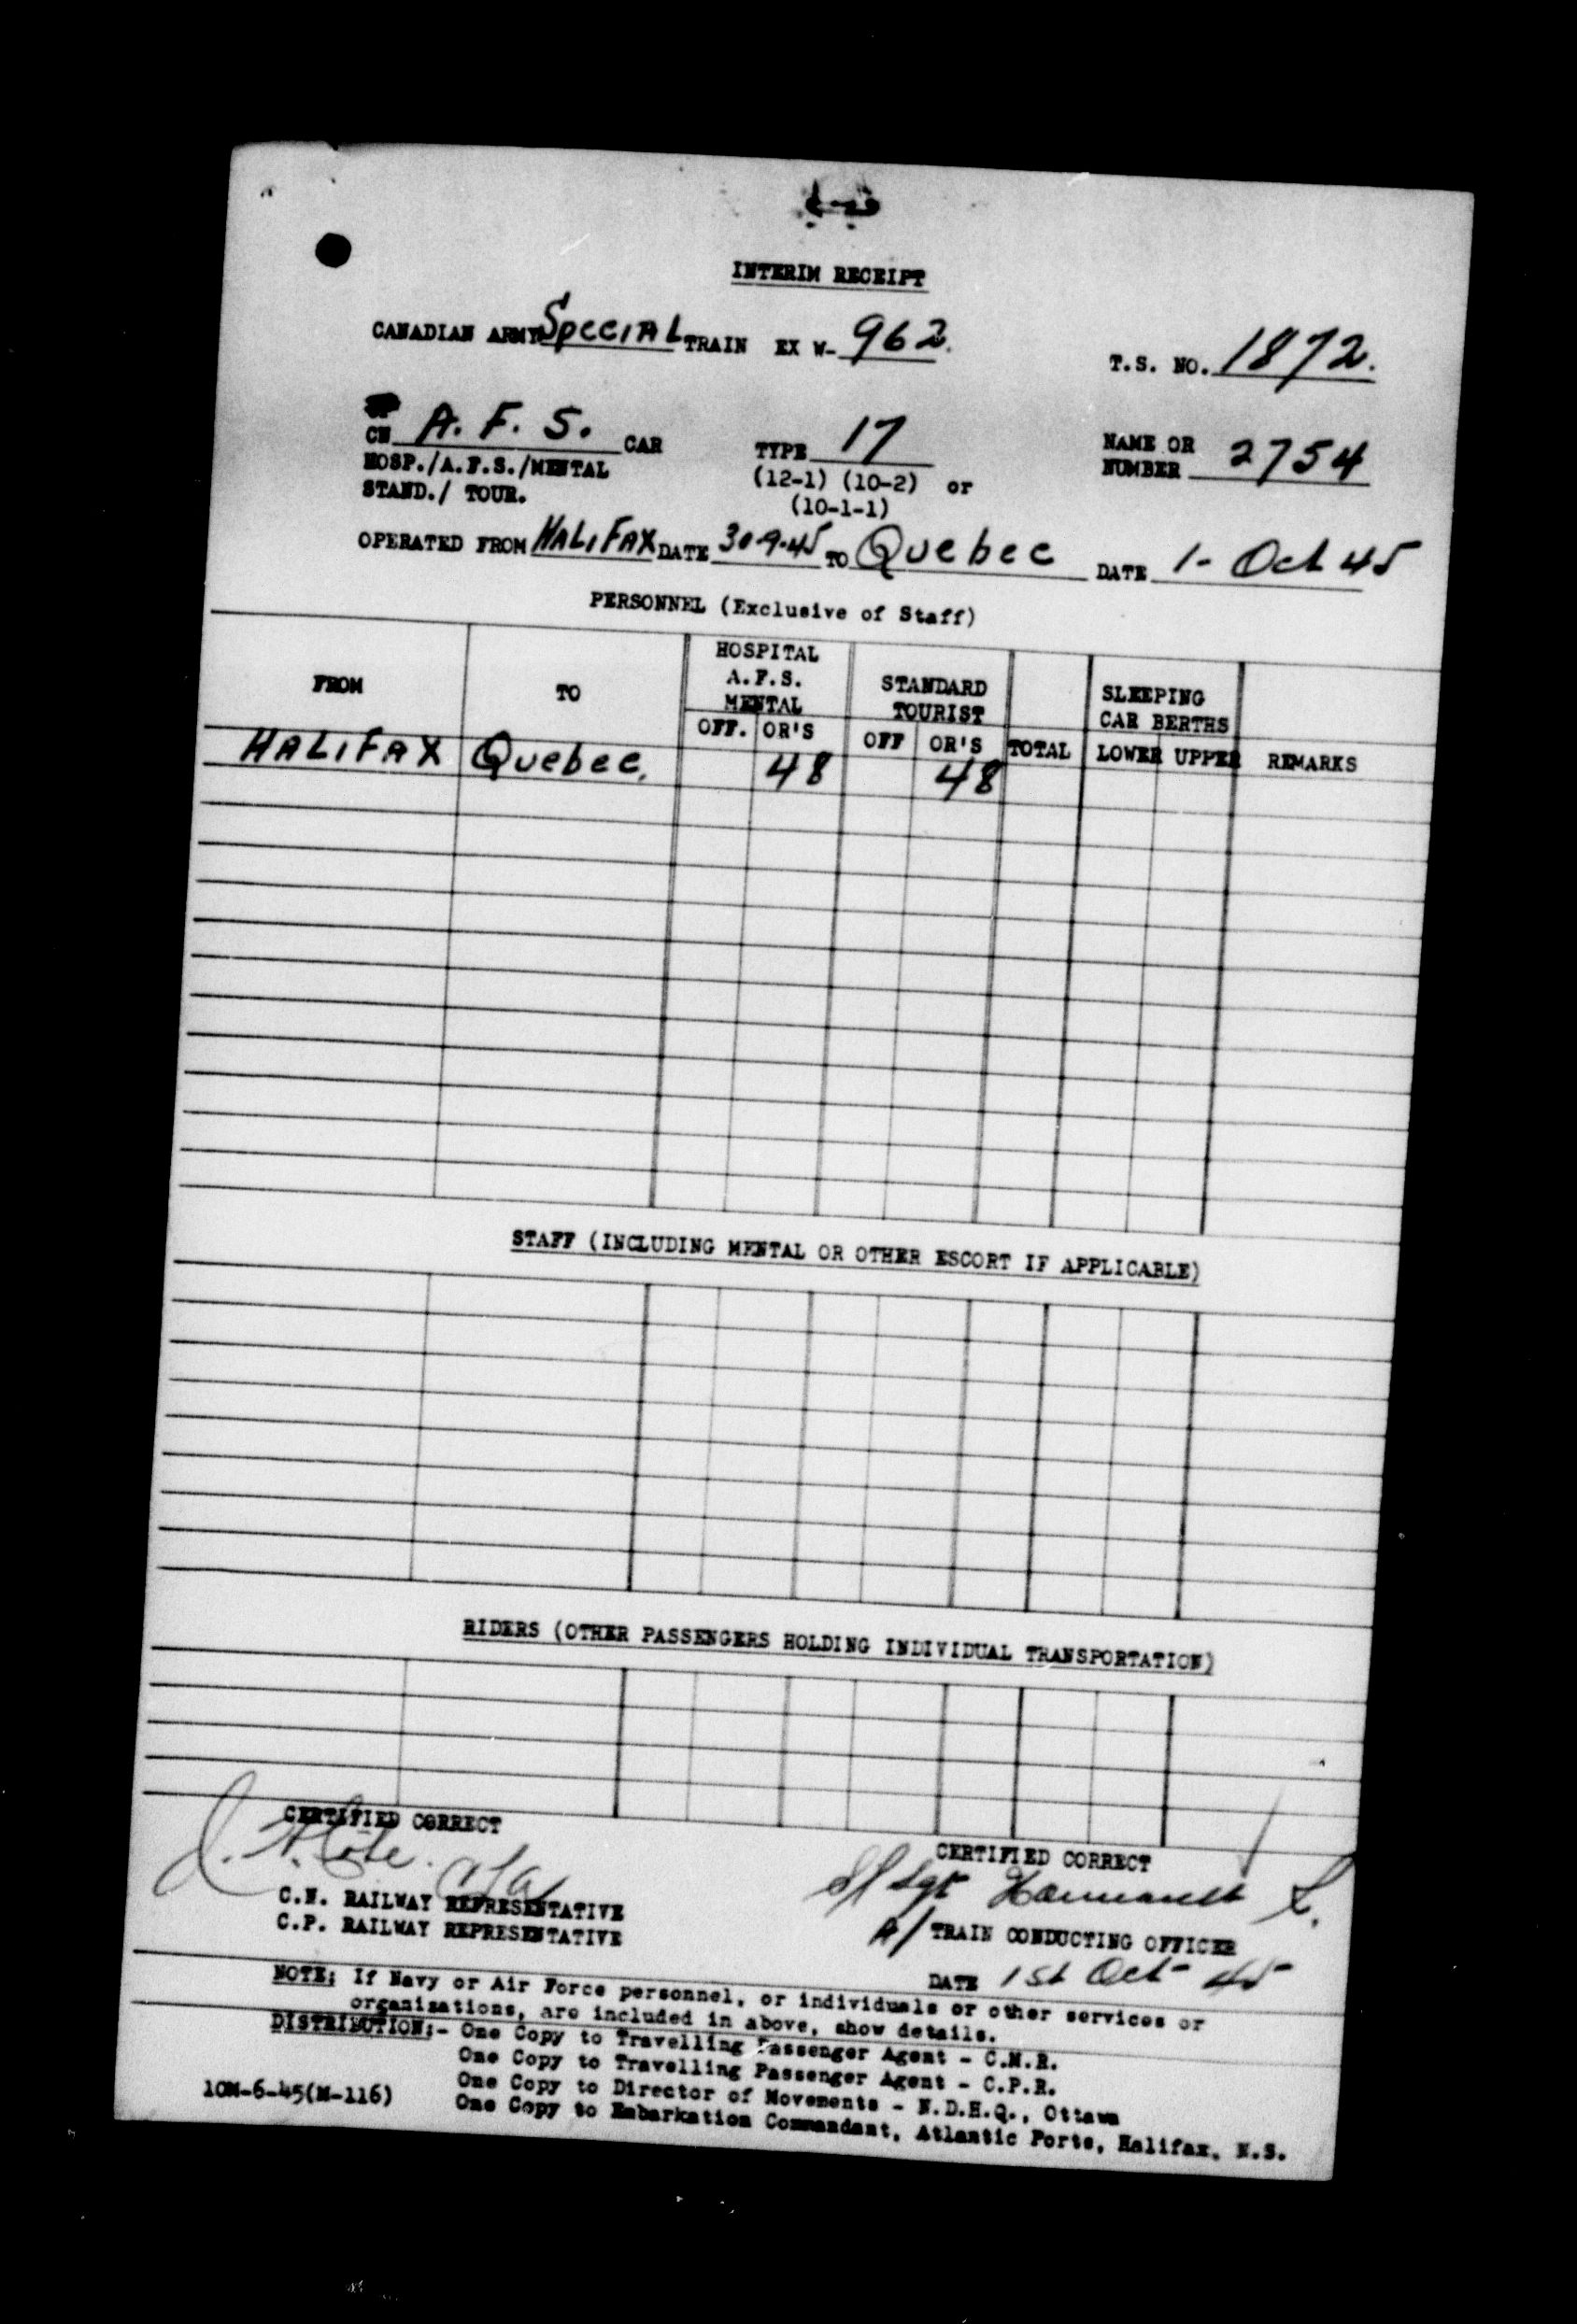 INTERIM RECEIPT
CANADIAN ARMY Special TRAIN EX W- 962. T.S. NO. 1872.
CN A. F. S. CAR TYPE 17 NAME OR NUMBER 2754
HOSP./A.F.S./MENTAL (12-1) (10-2) or
STAND./ TOUR. (10-1-1)
OPERATED FROM HALIFAX DATE 30-9-45 TO Quebec DATE 1- Oct 45
PERSONNEL (Exclusive of Staff)
FROM TO HOSPITAL A.F.S. MENTAL STANDARD TOURIST SLEEPING CAR BERTHS
OFF. OR'S OFF OR'S TOTAL LOWER UPPER REMARKS
HALIFAX Quebec. 48 48
STAFF (INCLUDING MENTAL OR OTHER ESCORT IF APPLICABLE)
RIDERS (OTHER PASSENGERS HOLDING INDIVIDUAL TRANSPORTATION)
CERTIFIED CORRECT CERTIFIED CORRECT
S/Sgt
C.N. RAILWAY REPRESENTATIVE
C.P. RAILWAY REPRESENTATIVE A/ TRAIN CONDUCTING OFFICER
DATE 1st Oct 45
NOTE: If Navy or Air Force personnel, or individuals or other services or
organizations, are included in above, show details.
DISTRIBUTION:- One Copy to Travelling Passenger Agent - C.N.R.
One Copy to Travelling Passenger Agent - C.P.R.
One Copy to Director of Movements - N.D.H.Q., Ottawa
One Copy to Embarkation Commandant, Atlantic Ports, Halifax, N.S.
10M-6-45(M-116)